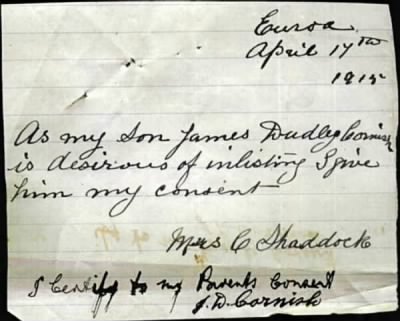 Euroa
April 17th
1915
As my Son James Dudley Cornish
is desirous of inlisting I give
him my consent
Mrs C Shaddock
I Certify to my Parents Consent
J. D. Cornish